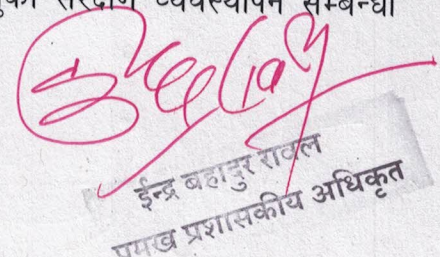 संरक्षण व्यवस्थापन सम्बन्धी
ईन्द्र बहादुर रावल
प्रमुख प्रशासकीय अधिकृत